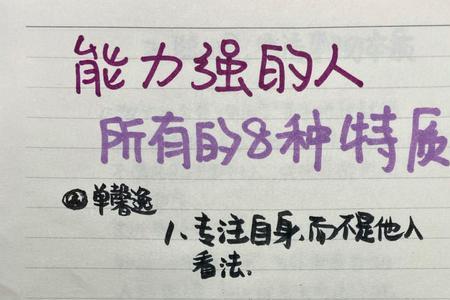 能力强的人
所有的8种特质
@单馨逸
1、专注自身、而不是他人
看法.